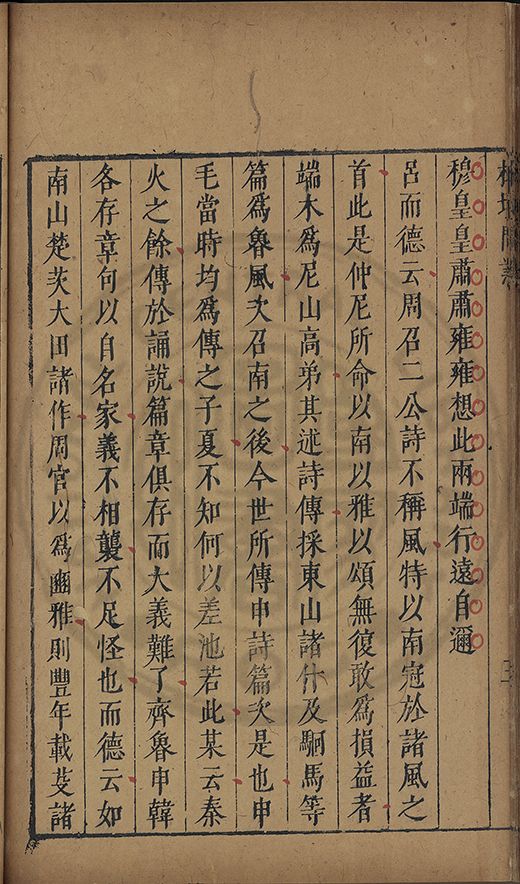 穆皇皇肅肅雍雍想此兩端行遠自邇
呂而德云周召二公詩不稱風特以南冠於諸風之
首此是仲尼所命以南以雅以頌無復敢為損益者
端木為尼山高弟其述詩傳採東山諸什及駉馬等
篇為魯風次召南之後今世所傳申詩篇次是也申
毛當時均為傳之子夏不知何以差池若此某云秦
火之餘傳於誦說篇章俱存而大義難了齊魯申韓
各存章句以自名家義不相襲不足怪也而德云如
南山楚茨大田諸作周官以為豳雅則豐年載芟諸